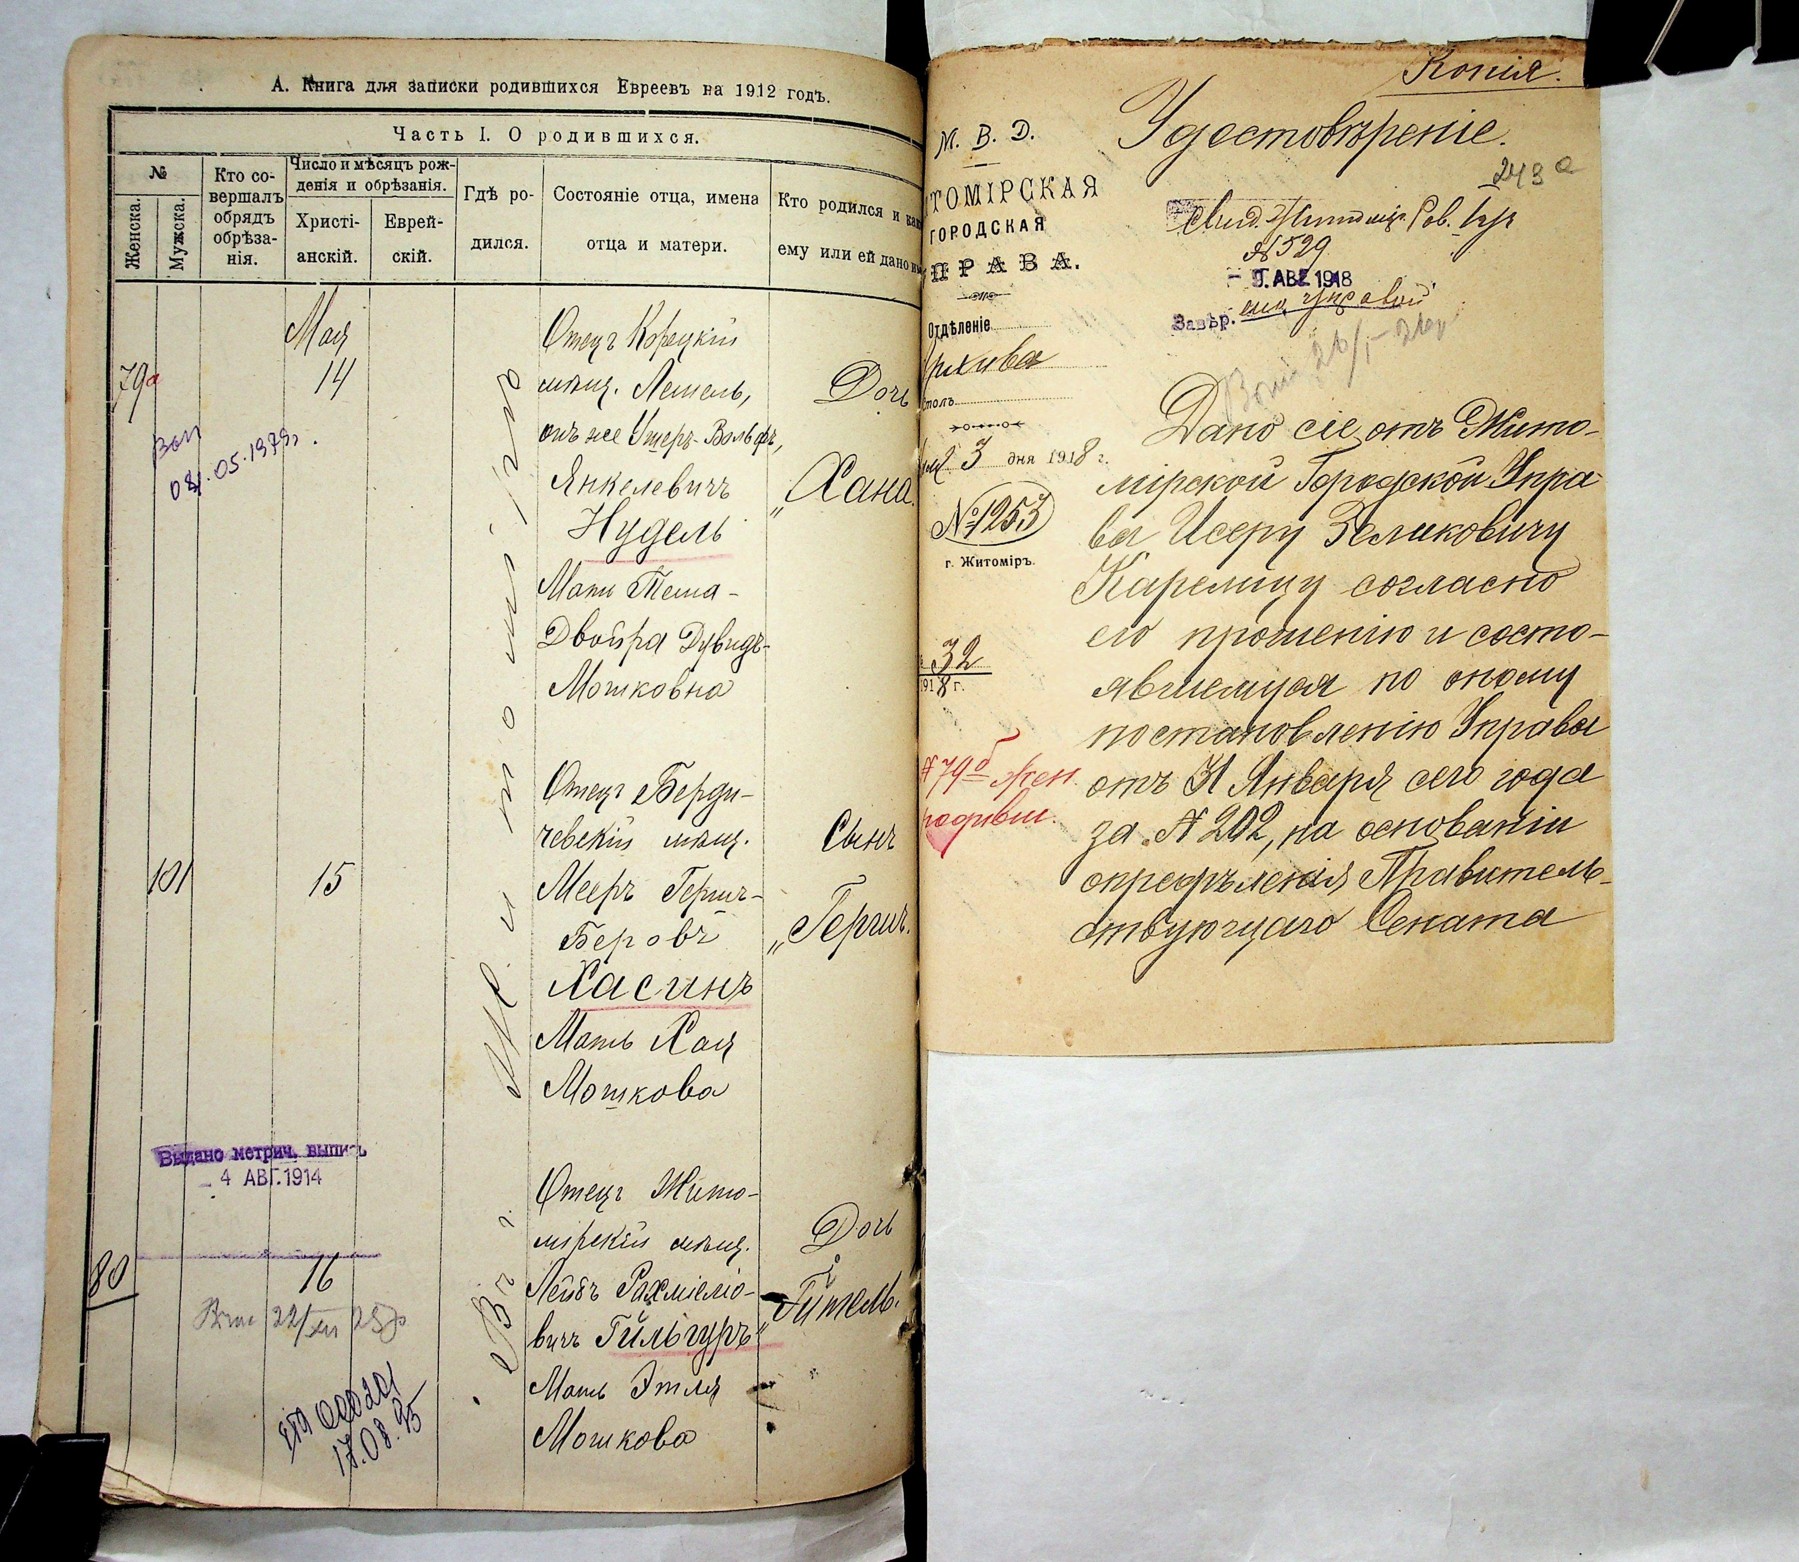 А. Книга для записки родившихся Евреевъ на 1912 годъ.
Часть I. О родившихся.
№
Женска.
Мужска.
Кто со-
вершалъ
обрядъ
обрѣза-
нія.
Число и мѣсяцъ рож-
денія и обрѣзанія.
Христі-
анскій.
Еврей-
скій.
Гдѣ ро-
дился.
Состояніе отца, имена
отца и матери.
Кто родился и как
ему или ей дано
Мая
79а
14
08.05.1979г.
Отецъ Корецкій
мѣщ. Лемель,
онъ же Ушеръ-Вольфъ,
Янкелевичъ
Нудель
Мать Тема-
Двойра Дувидъ-
Мошковна
Дочь
„Хана.
101
15
Отецъ Берди-
чевскій мѣщ.
Мееръ Герш-
Беровъ
Хасинъ
Мать Хая
Мошкова
Сынъ
„Гершъ.
Выдано метрич. выпись
4 АВГ. 1914
80
16
22/XII 25г
17.08.95
Отецъ Жито-
мірскій мѣщ.
Лейбъ Рахміеліо-
вичъ Гильгуръ
Мать Этля
Мошкова
Дочь
„Гитель.
Въ г. Житомірѣ
Копія.
М. В. Д.
Удостовѣреніе.
243а
ТОМІРСКАЯ
ГОРОДСКАЯ
ПРАВА.
Отдѣленіе
рхива
столъ
3 дня 1918 г.
№1253
г. Житоміръ.
32
1918 г.
№79б жен.
родивш.
№529
9. АВГ. 1918
Завѣр.
Дано сіе отъ Жито-
мірской Городской Упра-
вы Исеру Зеликовичу
Карелицу согласно
его прошенію и состо-
явшемуся по оному
постановленію Управы
отъ 31 Января сего года
за №202, на основаніи
опредѣленія Правитель-
ствующаго Сената